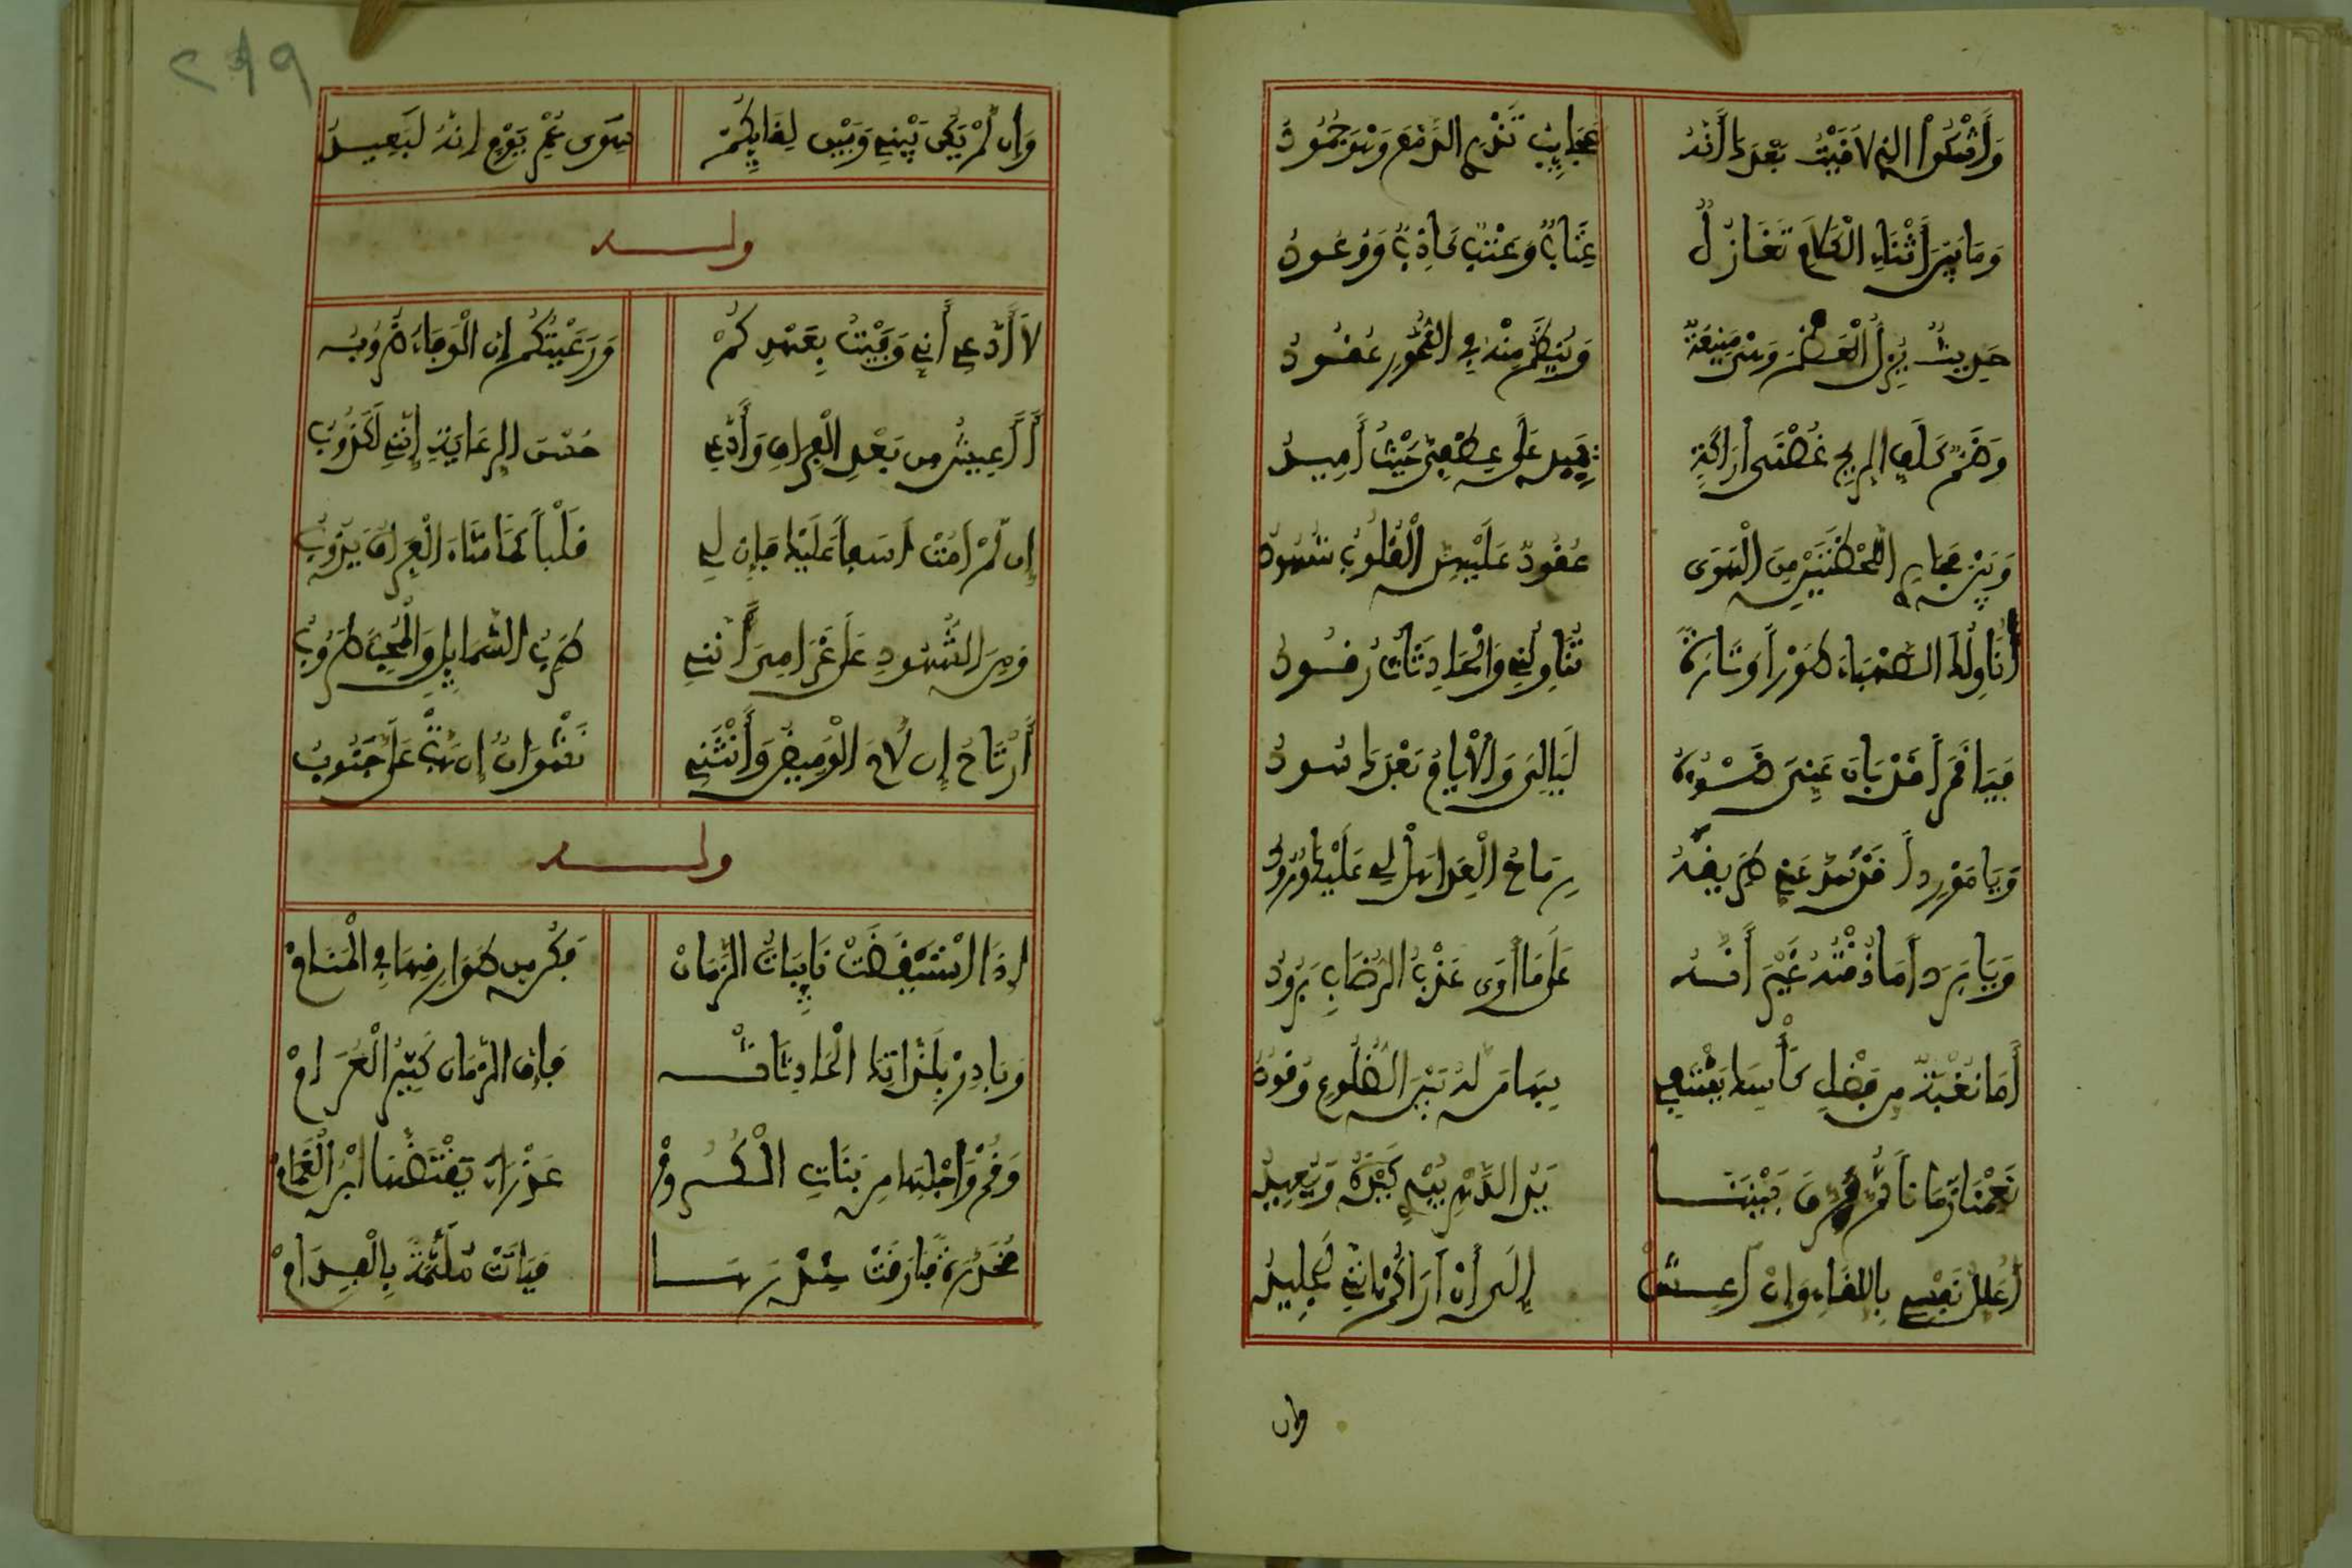 وَأَشْكُوا الذِي لَاقَيْتُ بَعْدَهَا أَنَّهُ عَجَايِبُ تُذْرِي الدَّمْعَ وَهْوَ جُمُودُ
وَمَا بَيْنَ أَثْنَاءِ الْكَلَامِ تَغَازُلٌ عِتَابٌ وَعَتْبٌ كَاذِبٌ وَوُعُودُ
حَدِيثٌ يُزِلُّ الْعُصْمَ وَهْيَ مَنِيعَةٌ وَيُنْظَمُ مِنْهُ فِي النُّحُورِ عُقُودُ
وَضَمٌّ كَلَفِّ الرِّيحِ غُصْنَى أَرَاكَةٍ يَمِيدُ عَلَى عِطْفِى حَيْثُ أَمِيدُ
وَبَيْنَ مَجَارِي اللَّحْظَتَيْنِ مِنَ الْهَوَى عُقُودٌ عَلَيْهِنَّ الْقُلُوبُ شُهُودُ
أُنَاوِلُهَا الصَّهْبَاءَ طَوْراً وَتَارَةً تُنَاوِلُنِي وَالْحَادِثَاتُ رُقُودُ
فَيَا قَمَراً قَدْ بَانَ عَنِّى ضَوْءُهُ لَيَالِىَ وَالْأَيَّامُ بَعْدَهَا سُودُ
وَيَا مَوْرِداً قَدْ سُدَّ عَنِّي طَرِيقُهُ رِمَاحُ الْعِدَا هَلْ لِي عَلَيْهَا وُرُودُ
وَيَا بَرَداً مَا ذُقْتُهُ غَيْرَ أَنَّهُ عَلَى مَا أَرَى عَذْبُ الرُّضَابِ بَرُودُ
أَمَا نُغْبَةٌ مِن فَضْلِ كَأْسِهَا يَشْتَفِي بِهَا مَن لَهُ بَيْنَ الضُّلُوعِ وُقُودُ
نَعِمْنَا زَمَاناً ثُمَّ فَرَّقَ بَيْنَنَا يَدُ الدَّهْرِ يُبْدِي كَيْدَهُ وَيُعِيدُ
أُعَلِّلُ نَفْسِي بِاللِّقَاءِ وَإِنْ أَعِشْ إِلَى أَنْ أَرَاكُمْ إِنَّنِي لَجَلِيدُ
وإن
وَإِن لَمْ يَكُن بَيْنِي وَبَيْنَ لِقَايِكُمْ سِوَى عُمْرِ يَوْمٍ إِنَّهُ لَبَعِيدُ
وله
لَا أَدَّعِي أَنِّي وَفَيْتُ بِعَهْدِكُمْ وَرَعَيْتُكُمْ إِنَّ الْوَفَاءَ ضُرُوبُ
أَأَعِيشُ مِن بَعْدِ الْفِرَاقِ وَأَدَّعِي حُسْنَ الرِّعَايَةِ إِنَّنِي لَكَذُوبُ
إِن لَمْ أَمُتْ أَسَفاً عَلَيْهَا فَإِنَّ لِي قَلْباً كَمَا شَاءَ الْفِرَاقُ يَذُوبُ
وَمِنَ الشُّهُودِ عَلَى غَرَامِىَ أَنَّنِي طَرِبُ الشَّمَايِلِ وَالْمُحِبُّ طَرُوبُ
أَرْتَاحُ إِن لَاحَ الْوَمِيضُ وَأَنْثَنِي نَشْوَانُ إِن هَبَّتْ عَلَىَّ جَنُوبُ
وله
إِذَا اسْتَيْقَظَتْ نَايِبَاتُ الزَّمَانْ فَكُن مِن طَوَارِقِهَا فِي الْمَنَامْ
وَبَادِرْ بِلَذَّاتِهَا الْحَادِثَاتْ فَإِنَّ الزَّمَانَ كَثِيرُ الْعُرَامْ
وَقُمْ وَاجْلِهَا مِن بَنَاتِ الْكُرُومْ عَذْرَاءَ يَفْتَضُّهَا ابْنُ الْغَمَامْ
مُخَدَّرَةً فَارَقَتْ خِدْرَهَا فَبَاتَتْ مُلَثَّمَةً بِالْفِدَامْ